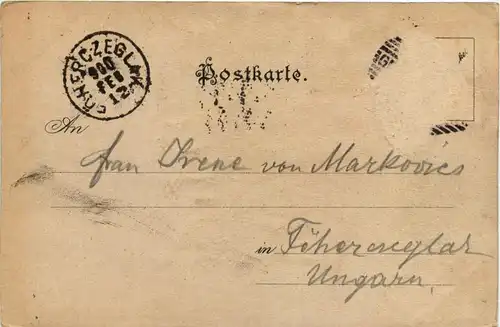 FEHÉRCZEGLAK
900
FEB
12
Postkarte.
An
Frau Irene von Markovics
in Féhérczeglak
Ungarn